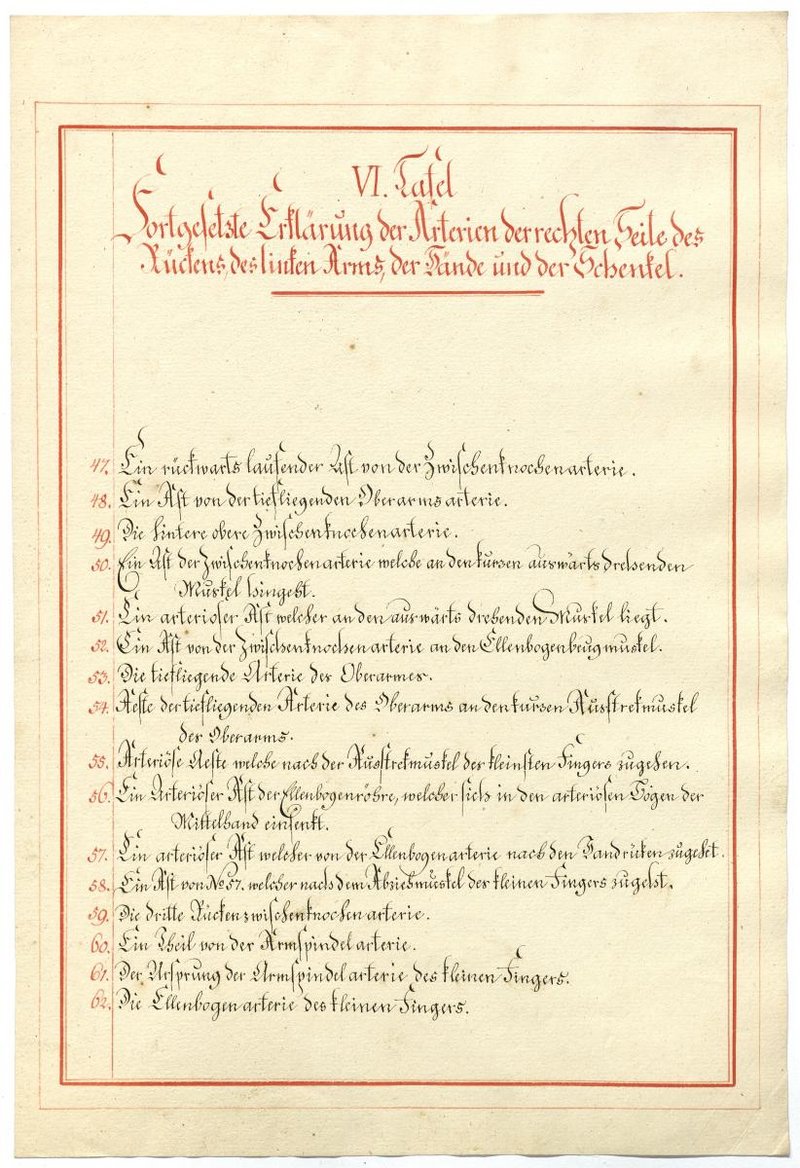 VI. Tafel
Fortgesetzte Erklärung der Arterien der rechten Seite des
Rückens, des linken Arms, der Hände und der Schenkel.
47. Ein rückwarts laufender Ast von der Zwischenknochenarterie.
48. Ein Ast von der tiefliegenden Oberarmsarterie.
49. Die hintere obere Zwischenknochenarterie.
50. Ein Ast der Zwischenknochenarterie welche an den kurzen auswärts drehenden
Muskel hingeht.
51. Ein arterioser Ast welcher an den auswärts drehenden Muskel liegt.
52. Ein Ast von der Zwischenknochenarterie an den Ellenbogenbeugmuskel.
53. Die tiefliegende Arterie des Oberarmes.
54. Aeste der tiefliegenden Arterie des Oberarms an den kurzen Ausstrekmuskel
des Oberarms.
55. Arteriöse Aeste welche nach der Ausstrekmuskel des kleinsten Fingers zugehen.
56. Ein Arteriöser Ast der Ellenbogenröhre, welcher sich in den arteriösen Bogen der
Mittelhand einsenkt.
57. Ein arteriöser Ast welcher von der Ellenbogenarterie nach den Handrüken zugehet.
58. Ein Ast von No 57. welcher nach dem Abziehmuskel des kleinen Fingers zugeht.
59. Die dritte Rückenzwischenknochenarterie.
60. Ein Theil von der Armspindelarterie.
61. Der Ursprung der Armspindelarterie des kleinen Fingers.
62. Die Ellenbogenarterie des kleinen Fingers.